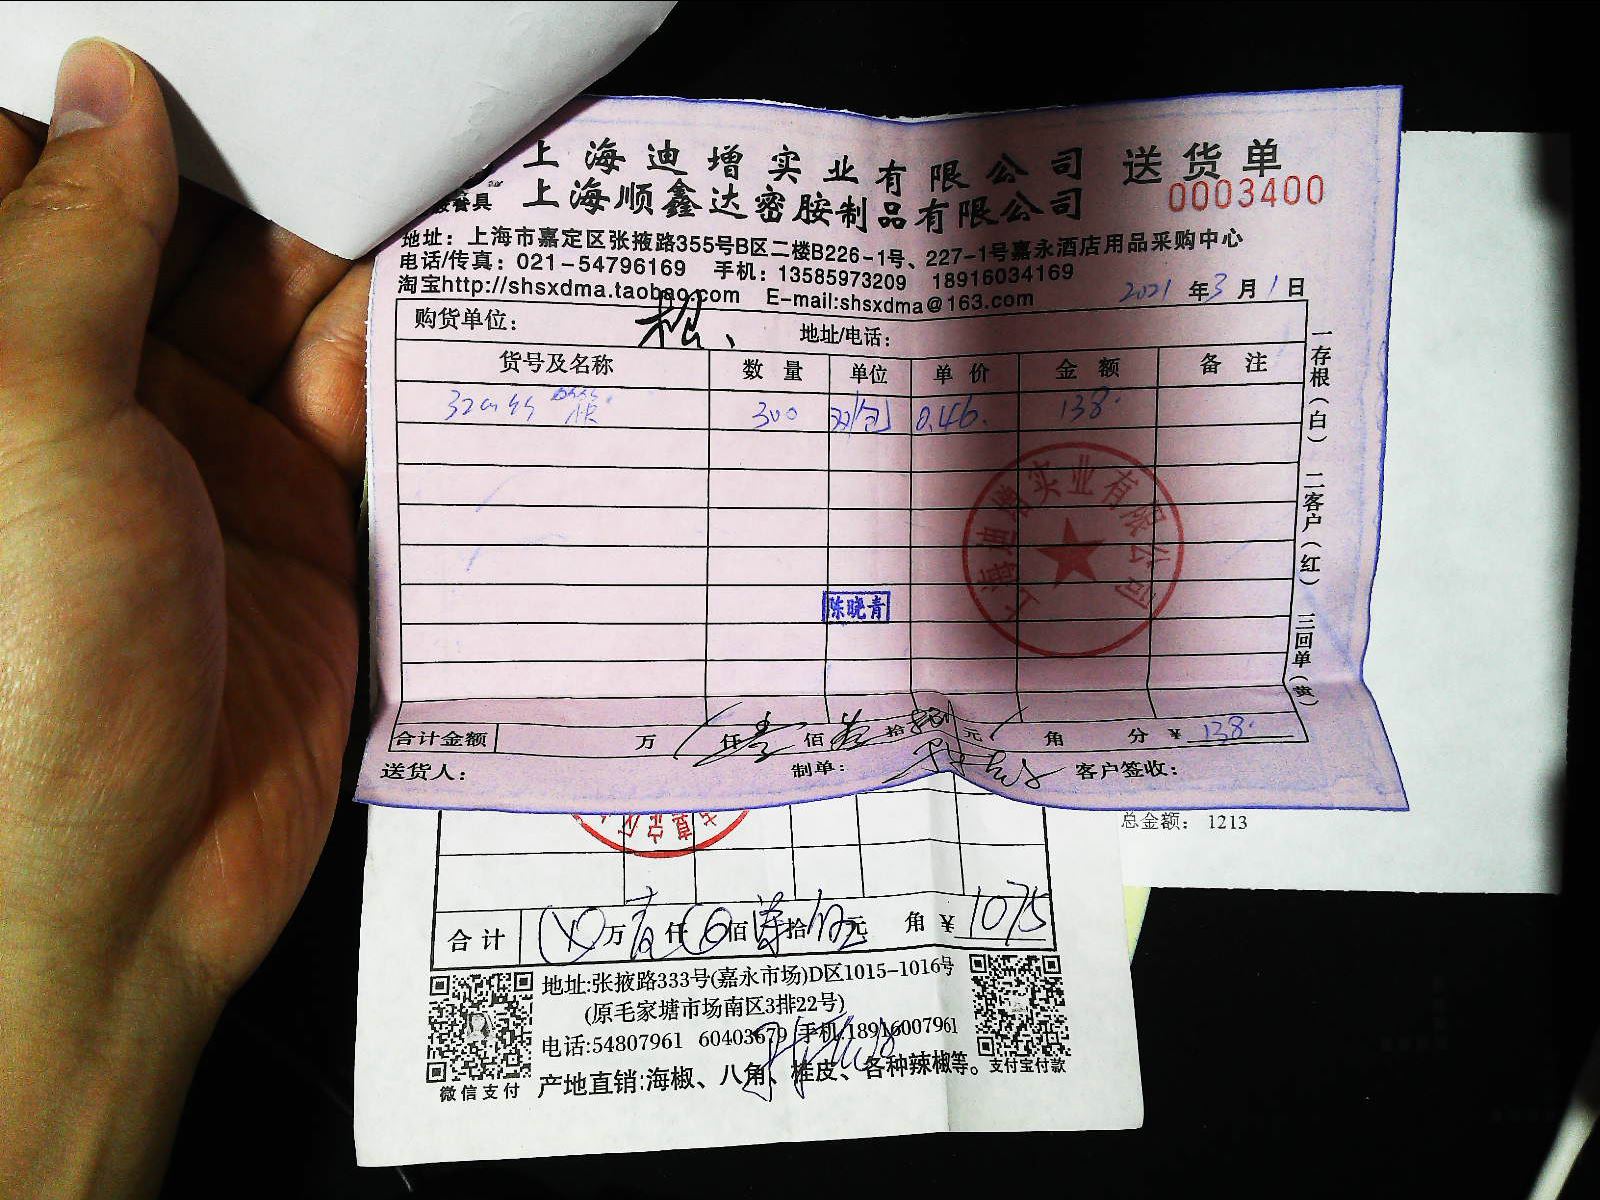 上海迪增实业有限公司 送货单
餐具 上海顺鑫达密胺制品有限公司 0003400
地址：上海市嘉定区张掖路355号B区二楼B226-1号、227-1号嘉永酒店用品采购中心
电话/传真：021-54796169 手机：13585973209 18916034169
淘宝http://shsxdma.taobao.com E-mail:shsxdma@163.com 2021 年 3 月 1 日
购货单位： 地址/电话：
货号及名称 数量 单位 单价 金额 备注
300 0.46. 138.
上海迪增实业有限公司
陈晓青
合计金额 万 仟 壹 佰 叁 拾 捌 元 角 分 ¥ 138.
送货人： 制单： 客户签收：
一存根（白） 二客户（红） 三回单（黄）
总金额： 1213
合计 万 仟 佰 拾 元 角 ¥ 1075
地址:张掖路333号(嘉永市场)D区1015-1016号
(原毛家塘市场南区3排22号)
电话:54807961 60403679 手机:18916007961
产地直销:海椒、八角、桂皮、各种辣椒等。
微信支付
支付宝付款